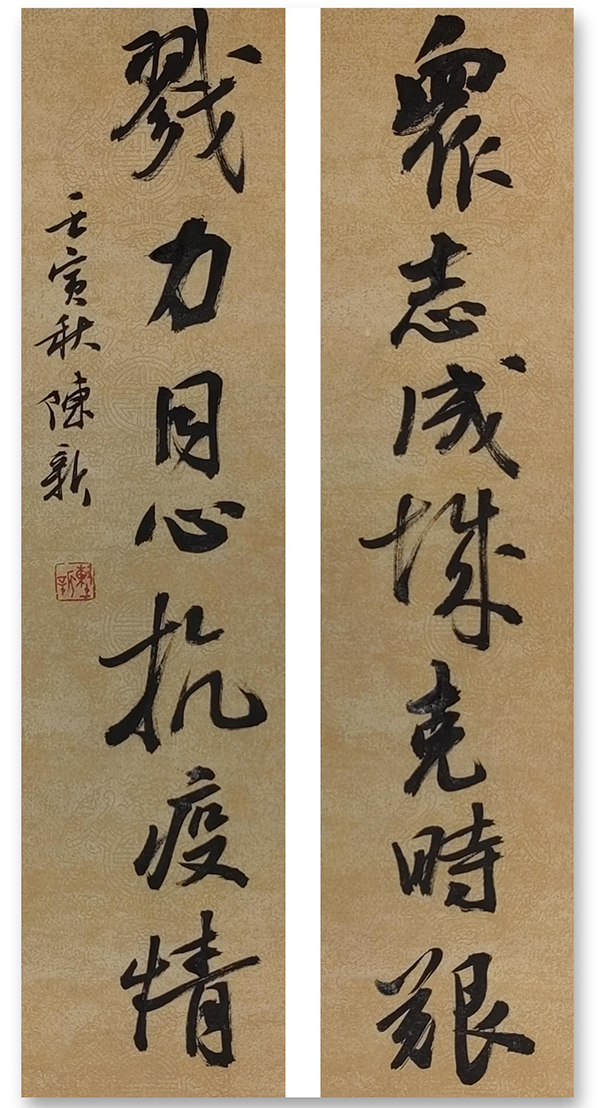 衆志成城克時艱
戮力同心抗疫情
壬寅秋陳新
陳新